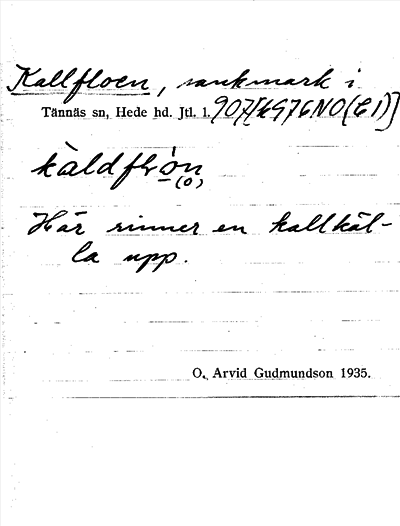 Kallfloen, sankmark i
Tännäs sn, Hede hd. Jtl. l. 907[KG976NO(C1)]
kàldflòn
(o)
Här rinner en kallkäl-
la upp.
O. Arvid Gudmundson 1935.